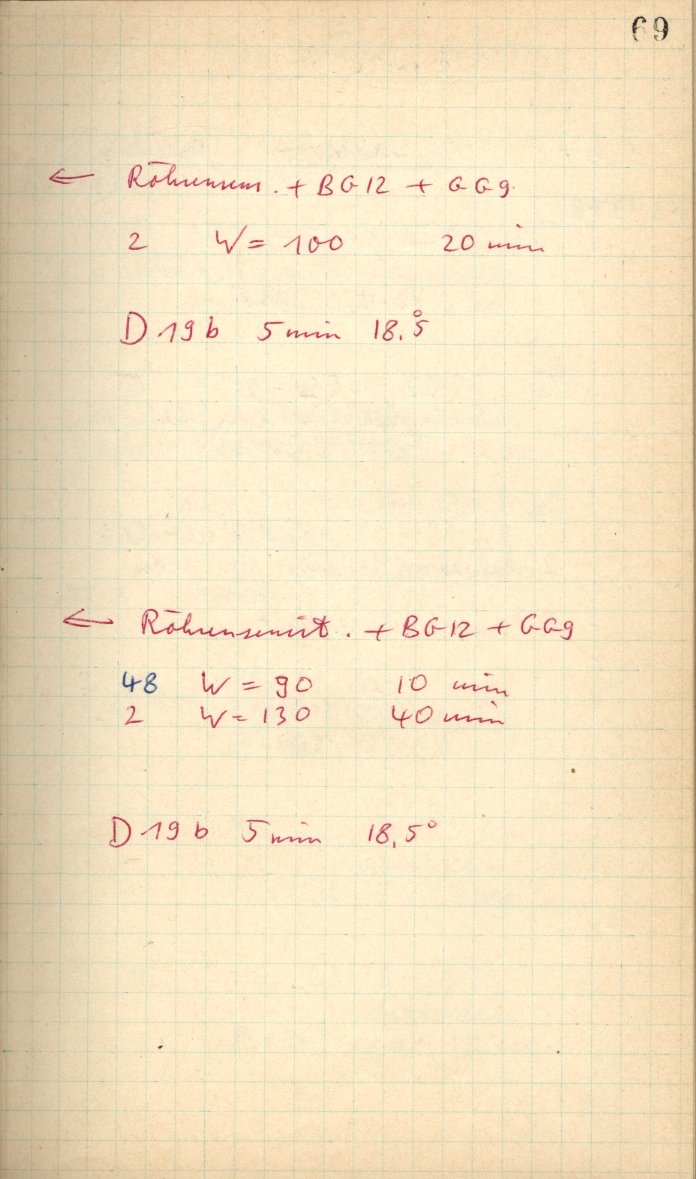 69
← Röhrensens. + BG12 + GG9.
2 W = 100 20 min
D 19 b 5 min 18.5°
← Röhrensensit. + BG12 + GG9
48 W = 90 10 min
2 W = 130 40 min
D 19 b 5 min 18,5°